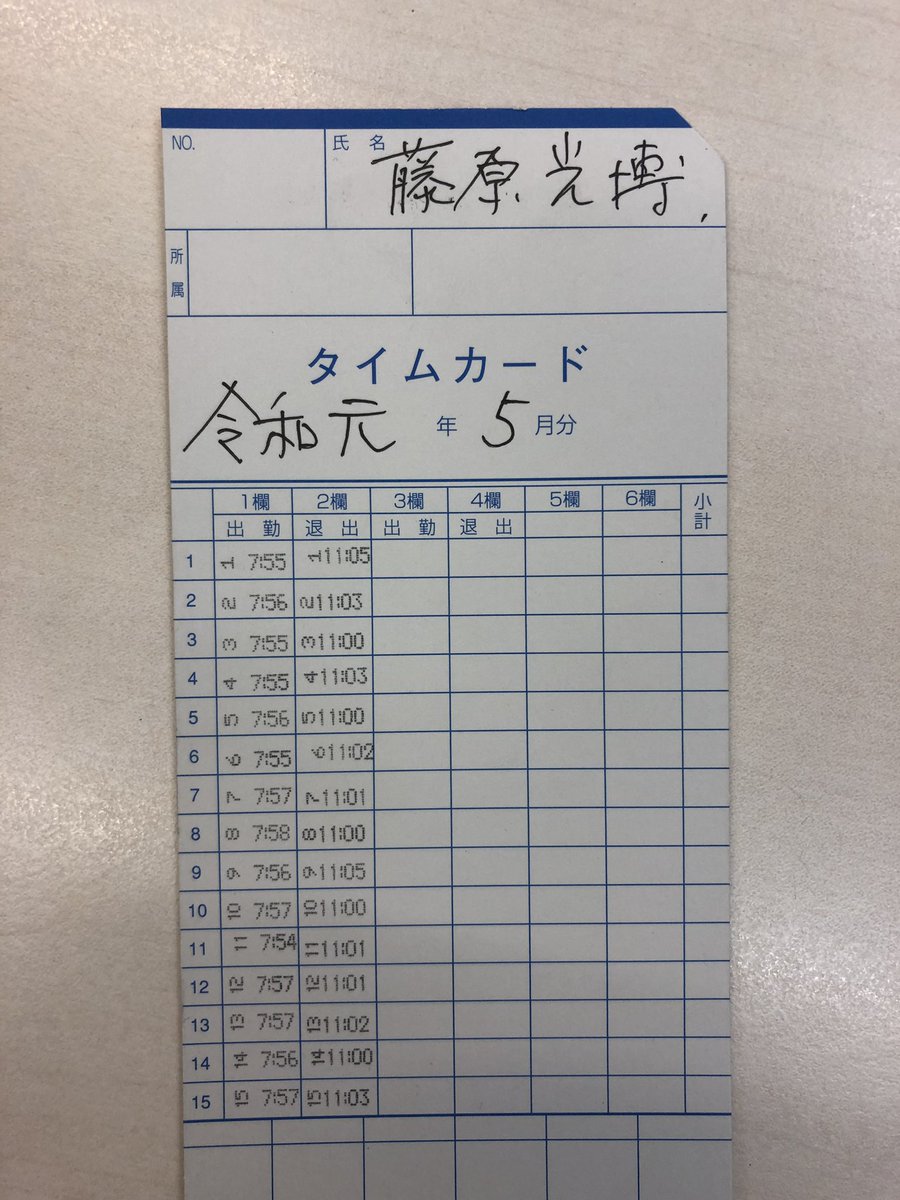 NO. 氏名 藤原光博
所属
タイムカード
令和元年5月分
1欄 2欄 3欄 4欄 5欄 6欄 小計
出勤 退出 出勤 退出
1 1 7:55 1 11:05
2 2 7:56 2 11:03
3 3 7:55 3 11:00
4 4 7:55 4 11:03
5 5 7:56 5 11:00
6 6 7:55 6 11:02
7 7 7:57 7 11:01
8 8 7:58 8 11:00
9 9 7:56 9 11:05
10 10 7:57 10 11:00
11 11 7:54 11 11:01
12 12 7:57 12 11:01
13 13 7:57 13 11:02
14 14 7:56 14 11:00
15 15 7:57 15 11:03